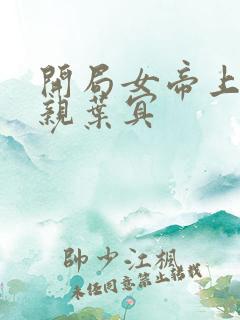 開局女帝上
親葉冥
帥少江楓
未經同意禁止轉載